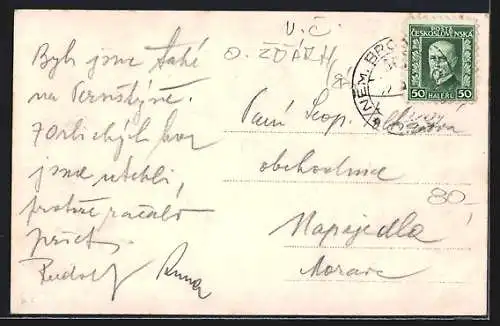 V. Č.
O. ŽĎÁR
POŠTA
ČESKOSLOVENSKÁ
50 HALÉŘŮ 50
NĚM. BROD
Byli jsme také
na Pernštýně.
Z Orlických hor
jsme utekli,
protože začalo
pršet.
Rudolf Anna
Paní Leop.
obchodnice
Napajedla
Morava
80,-